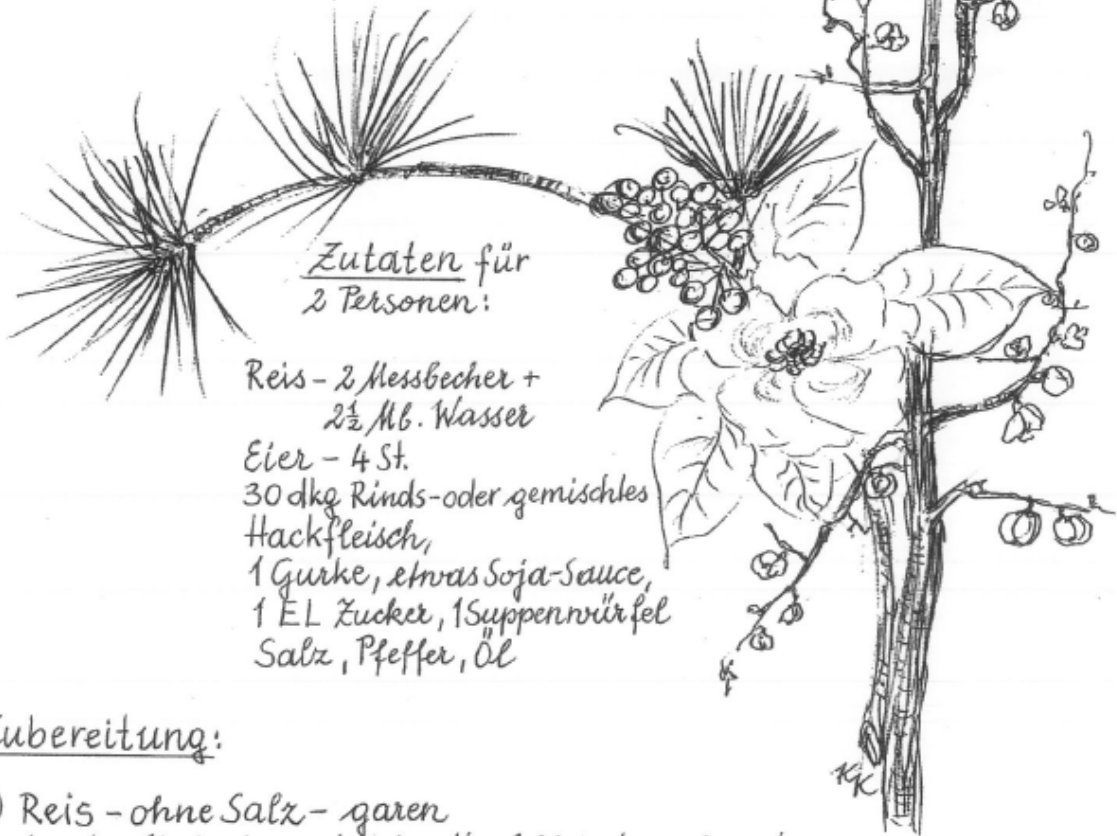 Zutaten für
2 Personen:
Reis - 2 Messbecher +
2½ Mb. Wasser
Eier - 4 St.
30 dkg Rinds- oder gemischtes
Hackfleisch,
1 Gurke, etwas Soja-Sauce,
1 EL Zucker, 1 Suppenwürfel
Salz, Pfeffer, Öl
KK
ubereitung:
) Reis - ohne Salz - garen